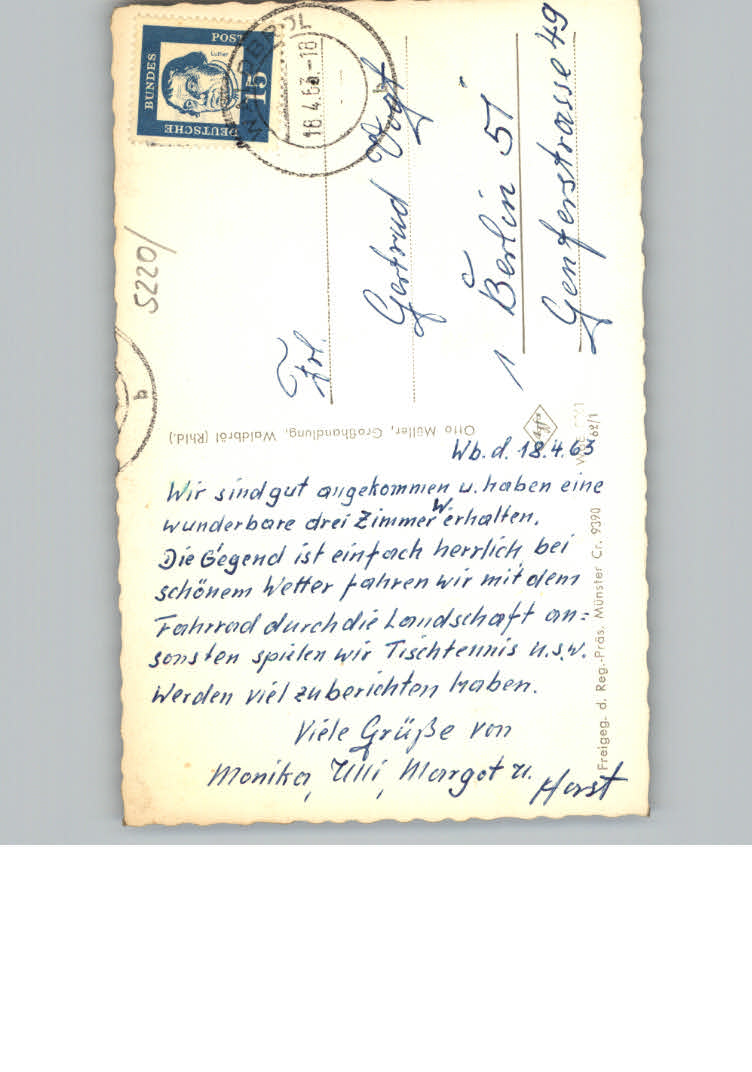 Wb. d. 18.4.63
Wir sind gut angekommen u. haben eine
wunderbare drei Zimmer W erhalten.
Die Gegend ist einfach herrlich, bei
schönem Wetter fahren wir mit dem
Fahrrad durch die Landschaft an=
sonsten spielen wir Tischtennis u.s.w.
Werden viel zu berichten haben.
Viele Grüße von
Monika, Ulli, Margot u. Horst
Frl.
Gertrud Vogt
1 Berlin 51
Genferstrasse 49
DEUTSCHE
BUNDES
POST
Luther
15
WALDBRÖL
18.4.63.-18
b
b
5220/
Otto Müller, Großhandlung, Waldbröl (Rhld.)
Agfa
62/1
Freigeg. d. Reg.-Präs. Münster Cr. 9390